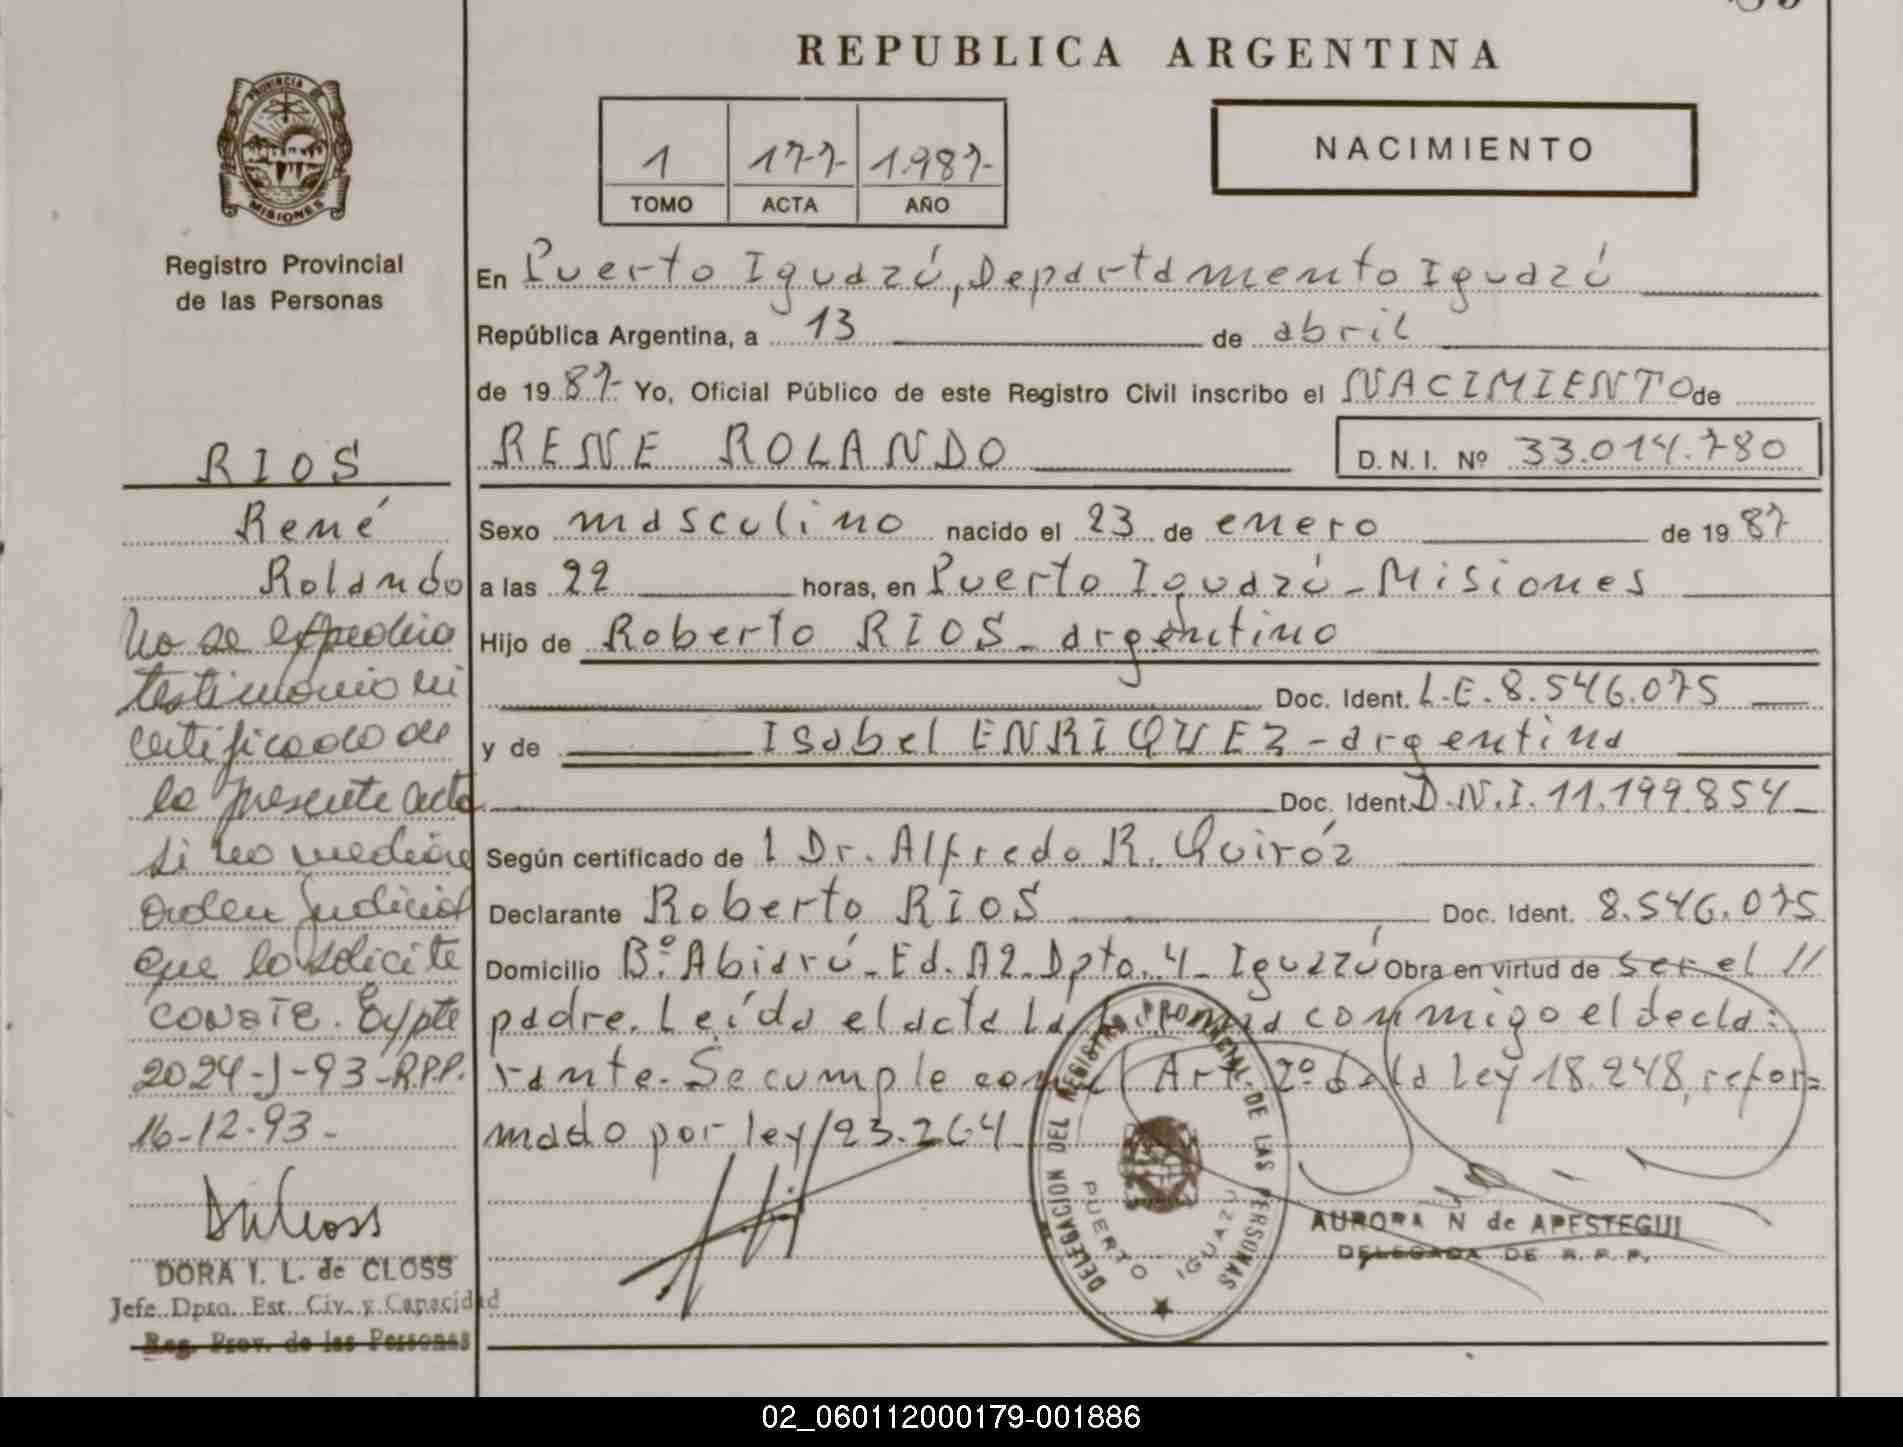 REPUBLICA ARGENTINA
PROVINCIA DE
MISIONES
Registro Provincial
de las Personas
1 177- 1.987-
TOMO ACTA AÑO
NACIMIENTO
En Puerto Iguazú, Departamento Iguazú
República Argentina, a 13 de abril
de 19 87- Yo, Oficial Público de este Registro Civil inscribo el NACIMIENTO de
RENE ROLANDO D. N. I. Nº 33.014.780
Sexo masculino nacido el 23 de enero de 19 87
a las 22 horas, en Puerto Iguazú - Misiones
Hijo de Roberto RIOS - argentino
Doc. Ident. L.E. 8.546.075
y de Isabel ENRIQUEZ - argentina
Doc. Ident. D.N.I. 11.199.854
Según certificado de l Dr. Alfredo R. Quiróz
Declarante Roberto RIOS Doc. Ident. 8.546.075
Domicilio Bº. Abiarú - Ed. A2 - Dpto. 4 - Iguazú Obra en virtud de ser el //
padre. Leída el acta la firma conmigo el decla=
rante. Se cumple con el Art. 2º de la Ley 18.248, refor=
mado por ley 23.264
RIOS
René
Rolando
No se expedirá
testimonio ni
certificado de
la presente acta
si no mediare
orden judicial
que lo solicite
CONSTE. Expte
2024-J-93-R.P.P.
16-12-93-
DORA I. L. de CLOSS
Jefe Dpto. Est. Civ. y Capacidad
Reg. Prov. de las Personas
DELEGACION DEL REGISTRO PROVINCIAL DE LAS PERSONAS
PUERTO IGUAZU
AURORA N de APESTEGUI
DELEGADA DE R. P. P.
02_060112000179-001886